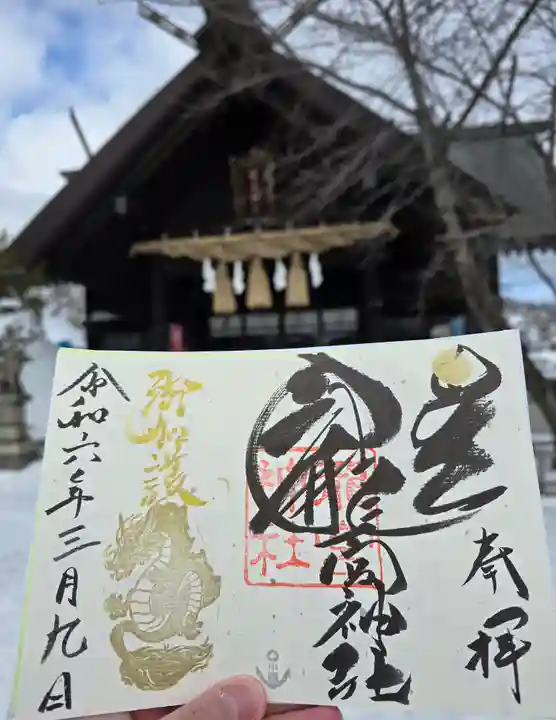 奉拝
龍宮神社
龍宮
神社
御加護
令和六年三月九日